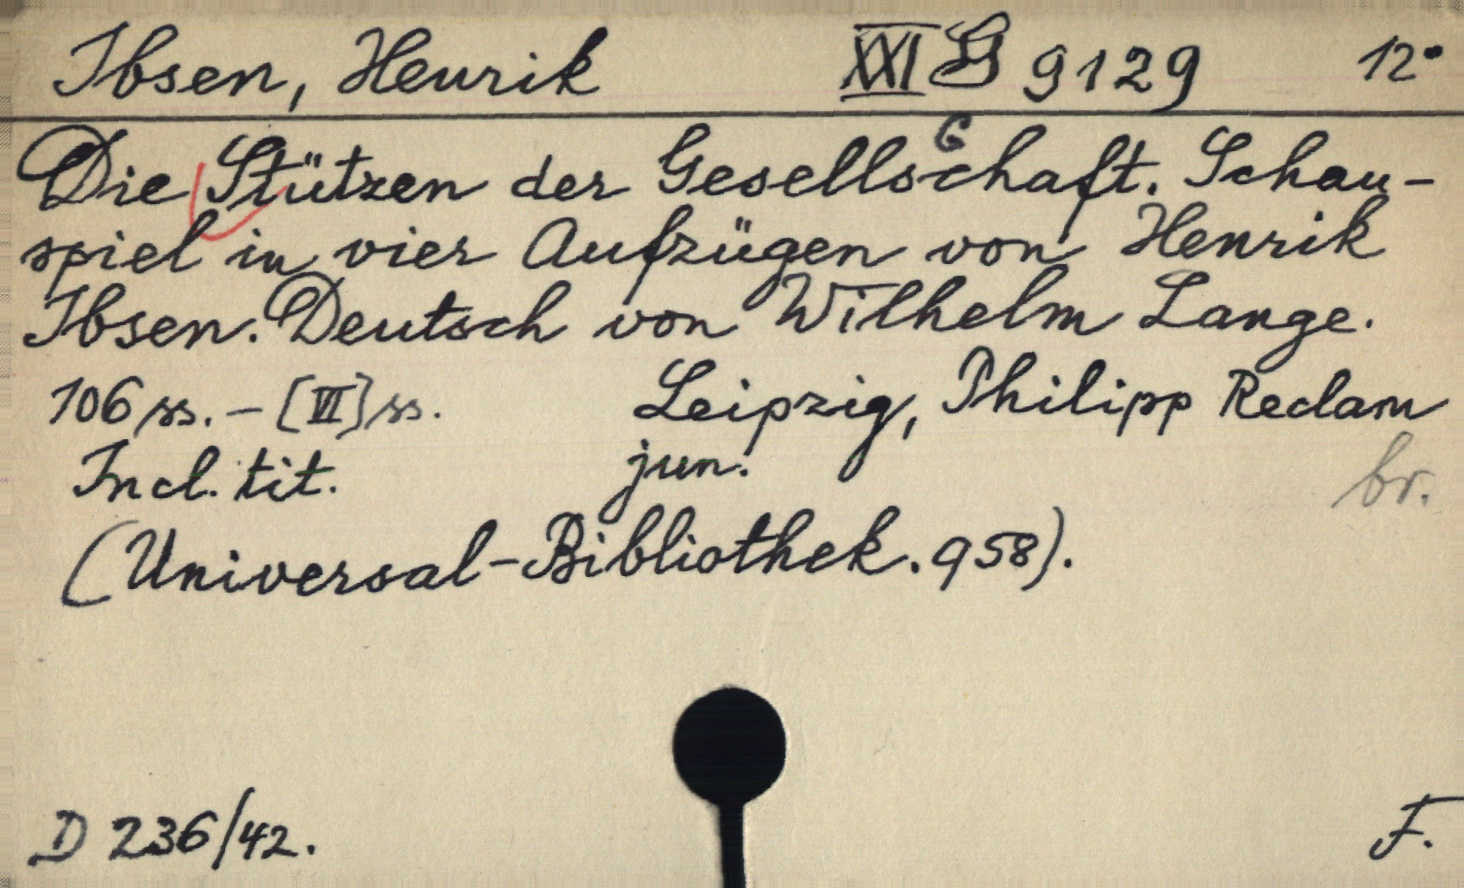 Ibsen, Henrik XXI G 9129 12°
Die Stützen der Gesellschaft. Schau-
spiel in vier Aufzügen von Henrik
Ibsen. Deutsch von Wilhelm Lange.
106 ss. – [VI] ss. Leipzig, Philipp Reclam
Incl. tit. jun. br.
(Universal-Bibliothek. 958).
D 236/42. F.